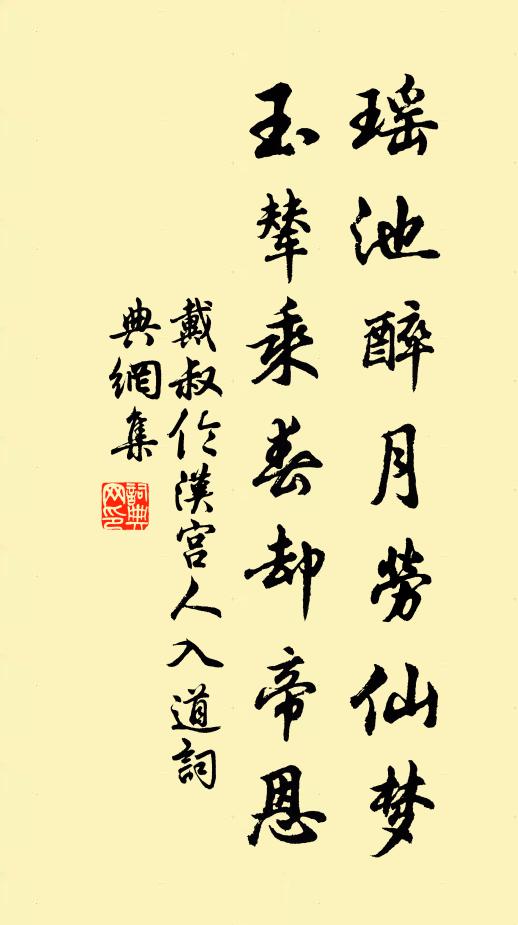 瑶池醉月劳仙梦
玉辇乘春却帝恩
戴叔伦漢宫人入道詞
典網集
詞典網印